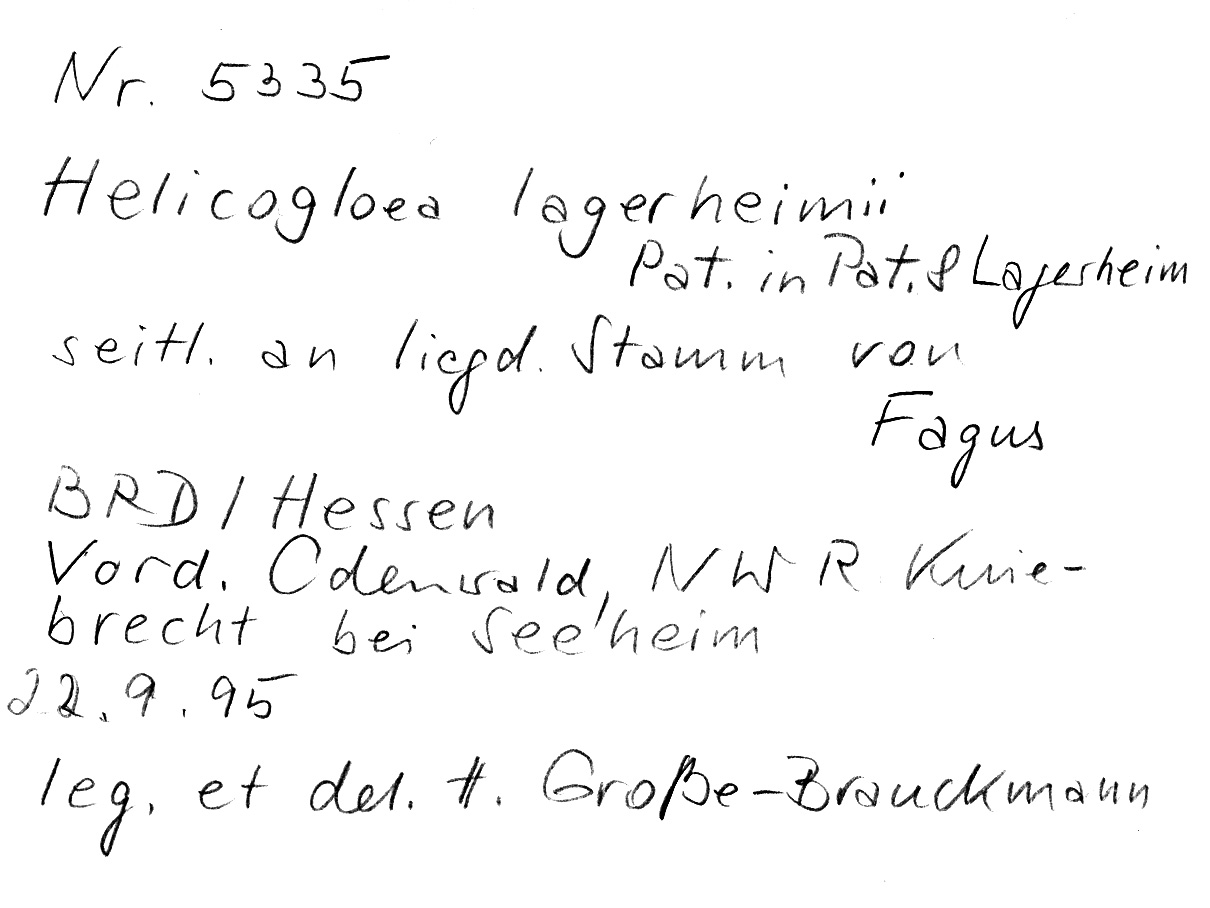 Nr. 5335
Helicogloea lagerheimii
Pat. in Pat. & Lagerheim
seitl. an liegd. Stamm von
Fagus
BRD / Hessen
Vord. Odenwald, NWR Knie-
brecht bei Seeheim
22.9.95
leg. et det. H. Große-Brauckmann